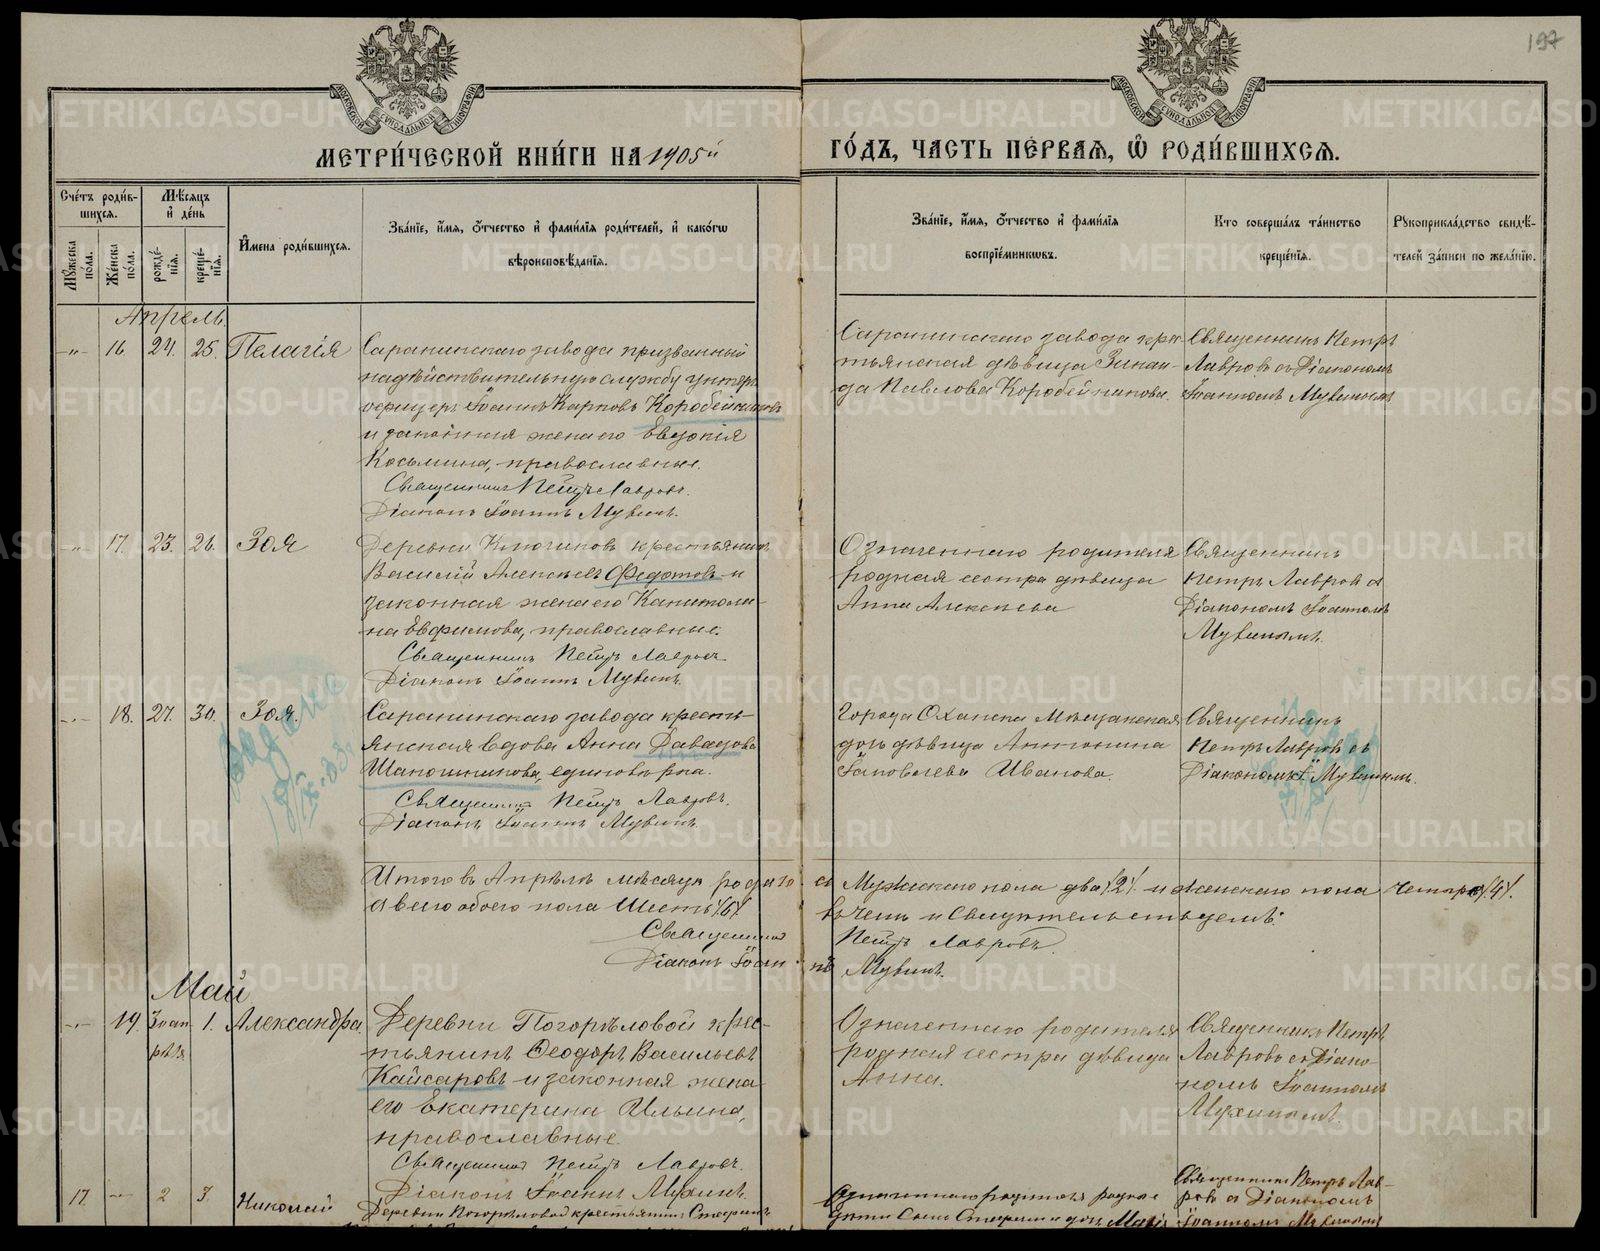 197
МОСКОВСКОЙ СУНОДАЛЬНОЙ ТИПОГРАФІИ
МОСКОВСКОЙ СУНОДАЛЬНОЙ ТИПОГРАФІИ
МЕТРИ́ЧЕСКОЙ КНИ́ГИ НА 1905й
ГО́ДЪ, ЧАСТЬ ПЕ́РВАѦ, Ѡ҆ РОДИ́ВШИХСѦ.
Сче́тъ роди́в-
шихсѧ.
Мѣ́сѧцъ
и҆ де́нь
Мꙋ́жеска по́ла.
Же́нска по́ла.
рожде́-
нїѧ.
креще́-
нїѧ.
И҆мена̀ роди́вшихсѧ.
Зва́нїе, и҆́мѧ, ѻ҆́тчество и҆ фами́лїѧ роди́телей, и҆ како́гѡ
вѣроисповѣ́данїѧ.
Зва́нїе, и҆́мѧ, ѻ҆́тчество и҆ фами́лїѧ
воспрїе́мникѡвъ.
Кто̀ соверша́лъ та́инство
креще́нїѧ.
Рꙋкоприкла́дство свидѣ́-
телей за́писи по жела́нїю.
Апрель.
-"- 16. 24. 25. Пелагія
Саранинскаго завода призванный
на дѣйствительную службу унтеръ
офицеръ Іоаннъ Карповъ Коробейниковъ
и законная жена его Евдокія
Косьмина, православные.
Священникъ Петръ Лавровъ.
Діаконъ Іоаннъ Мухинъ.
Саранинскаго завода кре-
стьянская дѣвица Зинаи-
да Павлова Коробейникова.
Священникъ Петръ
Лавровъ съ Діакономъ
Іоанномъ Мухинымъ
-"- 17. 23. 26. Зоя
Деревни Ключиковъ крестьянинъ
Василій Алексѣевъ Федотовъ и
законная жена его Капитоли-
на Евфимова, православные.
Священникъ Петръ Лавровъ
Діаконъ Іоаннъ Мухинъ.
Означеннаго родителя
родная сестра дѣвица
Анна Алексѣева
Священникъ
Петръ Лавровъ съ
Діакономъ Іоанномъ
Мухинымъ.
-"- 18. 27. 30. Зоя.
Саранинскаго завода кресть-
янская вдова Анна Давыдова
Шапошникова, единовѣрка.
Священникъ Петръ Лавровъ.
Діаконъ Іоаннъ Мухинъ.
Города Оханска Мѣщанская
дочь дѣвица Антонина
Іаковлева Иванова.
Священникъ
Петръ Лавровъ съ
Діакономъ І. Мухинымъ.
Итого въ Апрѣлѣ мѣсяцѣ родилось Мужескаго пола два /2/. и женскаго пола четыре /4/.
а всего обоего пола Шесть /6/. въ чемъ и свидѣтельствуемъ:
Священникъ Петръ Лавровъ
Діаконъ Іоаннъ Мухинъ.
Май
-"- 19. 30 ап-
рѣля 1. Александра.
Деревни Погорѣловой крес-
тьянинъ Ѳеодоръ Васильевъ
Кайсаровъ и законная жена
его Екатерина Ильина,
православные.
Священникъ Петръ Лавровъ.
Діаконъ Іоаннъ Мухинъ.
Означеннаго родителя
родная сестра дѣвица
Анна.
Священникъ Петръ
Лавровъ съ Діако-
номъ Іоанномъ
Мухинымъ.
17. -"- 2 3. Николай
Деревни Погорѣловой крестьянинъ
Означеннаго родителя родные
Священникъ Петръ Лав-
ровъ съ Діакономъ
Іоанномъ Мухинымъ
METRIKI.GASO-URAL.RU